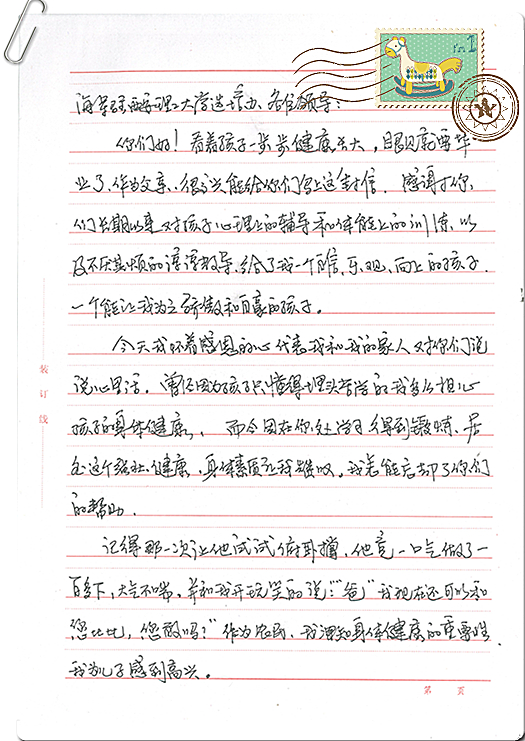 海军驻西安理工大学选培办、各位领导:
你们好!看着孩子一步步健康长大,眼见就要毕
业了,作为父亲,很高兴能给你们写上这封信。感谢你
们长期以来对孩子心理上的辅导和体能上的训练,以
及不厌其烦的谆谆教导,给了我一个自信、乐观、向上的孩子.
一个能让我为之骄傲和自豪的孩子。
今天我怀着感恩的心代表我和我的家人对你们说
说心里话。曾经因为孩子只懂得埋头苦学的我多么担心
孩子的身体健康, 而今因在你处学习得到锻炼.
这个健康,身体素质我难以,我怎能忘却了你们
的帮助.
记得那一次让他试试俯卧撑,他竟一口气做了一
百多下,大气不喘,并和我开玩笑的说:"爸"我现在还可以和
您比比,您敢吗?"作为农民,我深知身体健康的重要性.
我为儿子感到高兴。
装订线
第 页